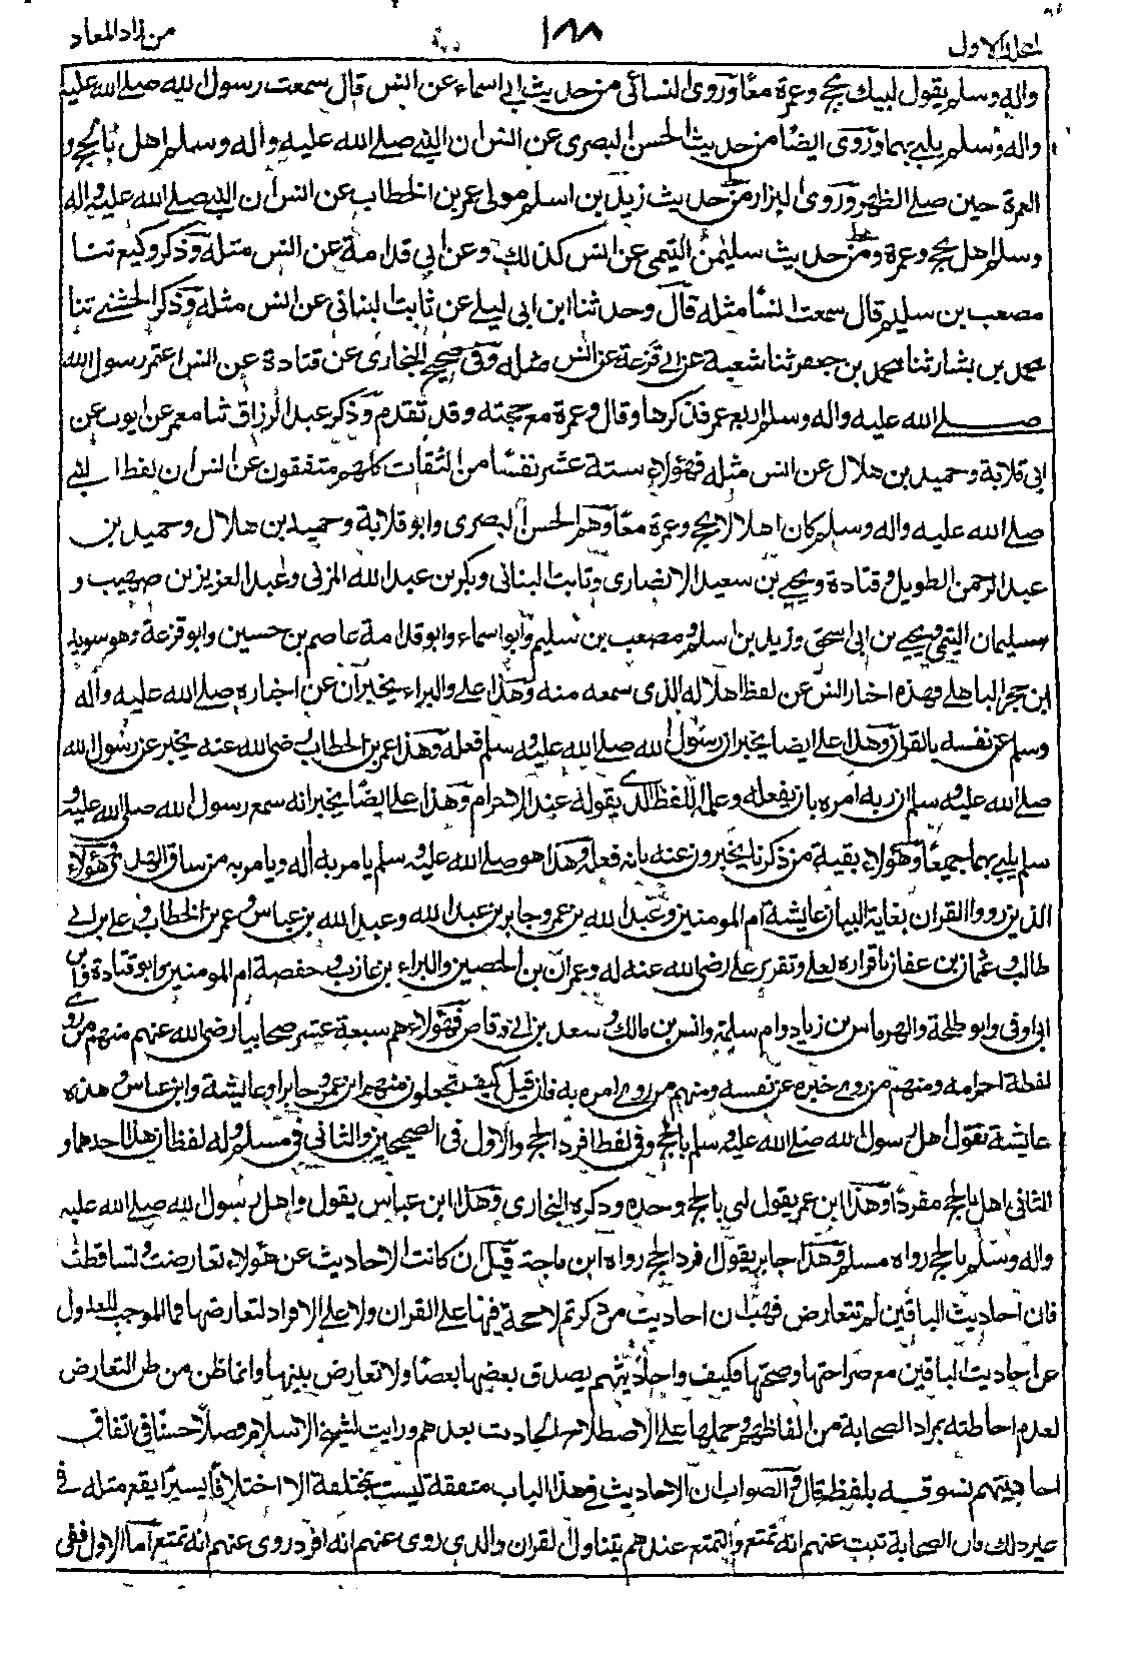 المجلد الاول ١٨٨ من زاد المعاد
واله وسلم يقول لبيك بحج وعمرة معًا وروى النسائي من حديث ابي اسماء عن انس قال سمعت رسول الله صلى الله عليه
واله وسلم يلبي بهما وروى ايضًا من حديث الحسن البصرى عن انس ان النبي صلى الله عليه واله وسلم اهل بالحج و
العمرة حين صلى الظهر وروى البزار من حديث زيد بن اسلم مولى عمر بن الخطاب عن انس ان النبي صلى الله عليه واله
وسلم اهل بحج وعمرة ومن حديث سليمن التيمى عن انس كذلك وعن ابى قدامة عن انس مثله وذكر وكيع ثنا
مصعب بن سليم قال سمعت انسًا مثله قال وحدثنا ابن ابى ليلى عن ثابت البنانى عن انس مثله وذكر الخشني ثنا
محمد بن بشار ثنا محمد بن جعفر ثنا شعبة عن ابي قزعة عن انس مثله وفي صحيح البخارى عن قتادة عن انس اعتمر رسول الله
صلى الله عليه واله وسلم اربع عمر فذكرها وقال وعمرة مع حجته وقد تقدم وذكر عبد الرزاق ثنا معمر عن ايوب عن
ابى قلابة وحميد بن هلال عن انس مثله فهؤلاء ستة عشر نفسًا من الثقات كلهم متفقون عن انس ان لفظ النبي
صلى الله عليه واله وسلم كان اهلالا بحج وعمرة معًا وهم الحسن البصرى وابو قلابة وحميد بن هلال وحميد بن
عبد الرحمن الطويل وقتادة ويحيى بن سعيد الانصارى وثابت البنانى وبكر بن عبد الله المزنى وعبد العزيز بن صهيب و
سليمان التيمى ويحيى بن ابى اسحق وزيد بن اسلم ومصعب بن سليم وابو اسماء وابو قدامة عاصم بن حسين وابو قزعة وهو سويد
ابن حجر الباهلى فهذه اخبار انس عن لفظ اهلاله الذى سمعه منه وهذا على والبراء يخبران عن اخباره صلى الله عليه واله
وسلم عن نفسه بالقران وهذا على ايضا يخبر ان رسول الله صلى الله عليه وسلم فعله وهذا عمر بن الخطاب رضى الله عنه يخبر عن رسول الله
صلى الله عليه وسلم ان ربه امره بان يفعله وعلمه اللفظ الذى يقوله عند الاحرام وهذا على ايضًا يخبر انه سمع رسول الله صلى الله عليه و
سلم يلبي بهما جميعًا وهؤلاء بقية من ذكرنا يخبرون عنه بانه فعله وهذا هو صلى الله عليه وسلم يامر به اله ويامر به من ساق الهدى وهؤلاء
الذين رووا القران بغاية البيان عايشة ام المومنين وعبد الله بن عمر وجابر بن عبد الله وعبد الله بن عباس وعمر بن الخطاب وعلى بن ابي
طالب وعثمان بن عفان باقراره لعلى وتقرير على رضى الله عنه له وعمران بن الحصين والبراء بن عازب وحفصة ام المومنين وابو قتادة وابن
ابى اوفى وابو طلحة والهرماس بن زياد وام سلمة وانس بن مالك وسعد بن ابي وقاص فهؤلاء هم سبعة عشر صحابيا رضى الله عنهم منهم من روى
لفظة احرامه ومنهم من روى خبره عن نفسه ومنهم من روى امره به فان قيل كيف تجعلون منهم ابن عمر وجابرا وعايشة وابن عباس وهذه
عايشة تقول اهل رسول الله صلى الله عليه وسلم بالحج وفى لفظ افرد الحج والاول فى الصحيحين والثانى فى مسلم وله لفظان هذا احدهما و
الثانى اهل بالحج مفردًا وهذا ابن عمر يقول لبى بالحج وحده وذكره البخارى وهذا ابن عباس يقول واهل رسول الله صلى الله عليه
واله وسلم بالحج رواه مسلم وهذا جابر يقول افرد الحج رواه ابن ماجة قيل ان كانت الاحاديث عن هؤلاء تعارضت وتساقطت
فان احاديث الباقين لم تتعارض فهب ان احاديث من ذكرتم لا حجة فيها على القران ولا على الافراد لتعارضها فما الموجب للعدول
عن احاديث الباقين مع صراحتها وصحتها فكيف واحاديثهم يصدق بعضها بعضا ولا تعارض بينها وانما ظن من ظن التعارض
لعدم احاطته بمراد الصحابة من الفاظهم وحملها على الاصطلاح الحادث بعدهم ورايت لشيخ الاسلام فصلًا حسنًا فى اتفاق
احاديثهم نسوقه بلفظه قال والصواب ان الاحاديث فى هذا الباب متفقة ليست بمختلفة الا اختلافًا يسيرًا يقع مثله فى
غير ذلك فان الصحابة ثبت عنهم انه تمتع والتمتع عندهم يتناول القران والذى روى عنهم انه افرد روى عنهم انه تمتع اما الاول ففى